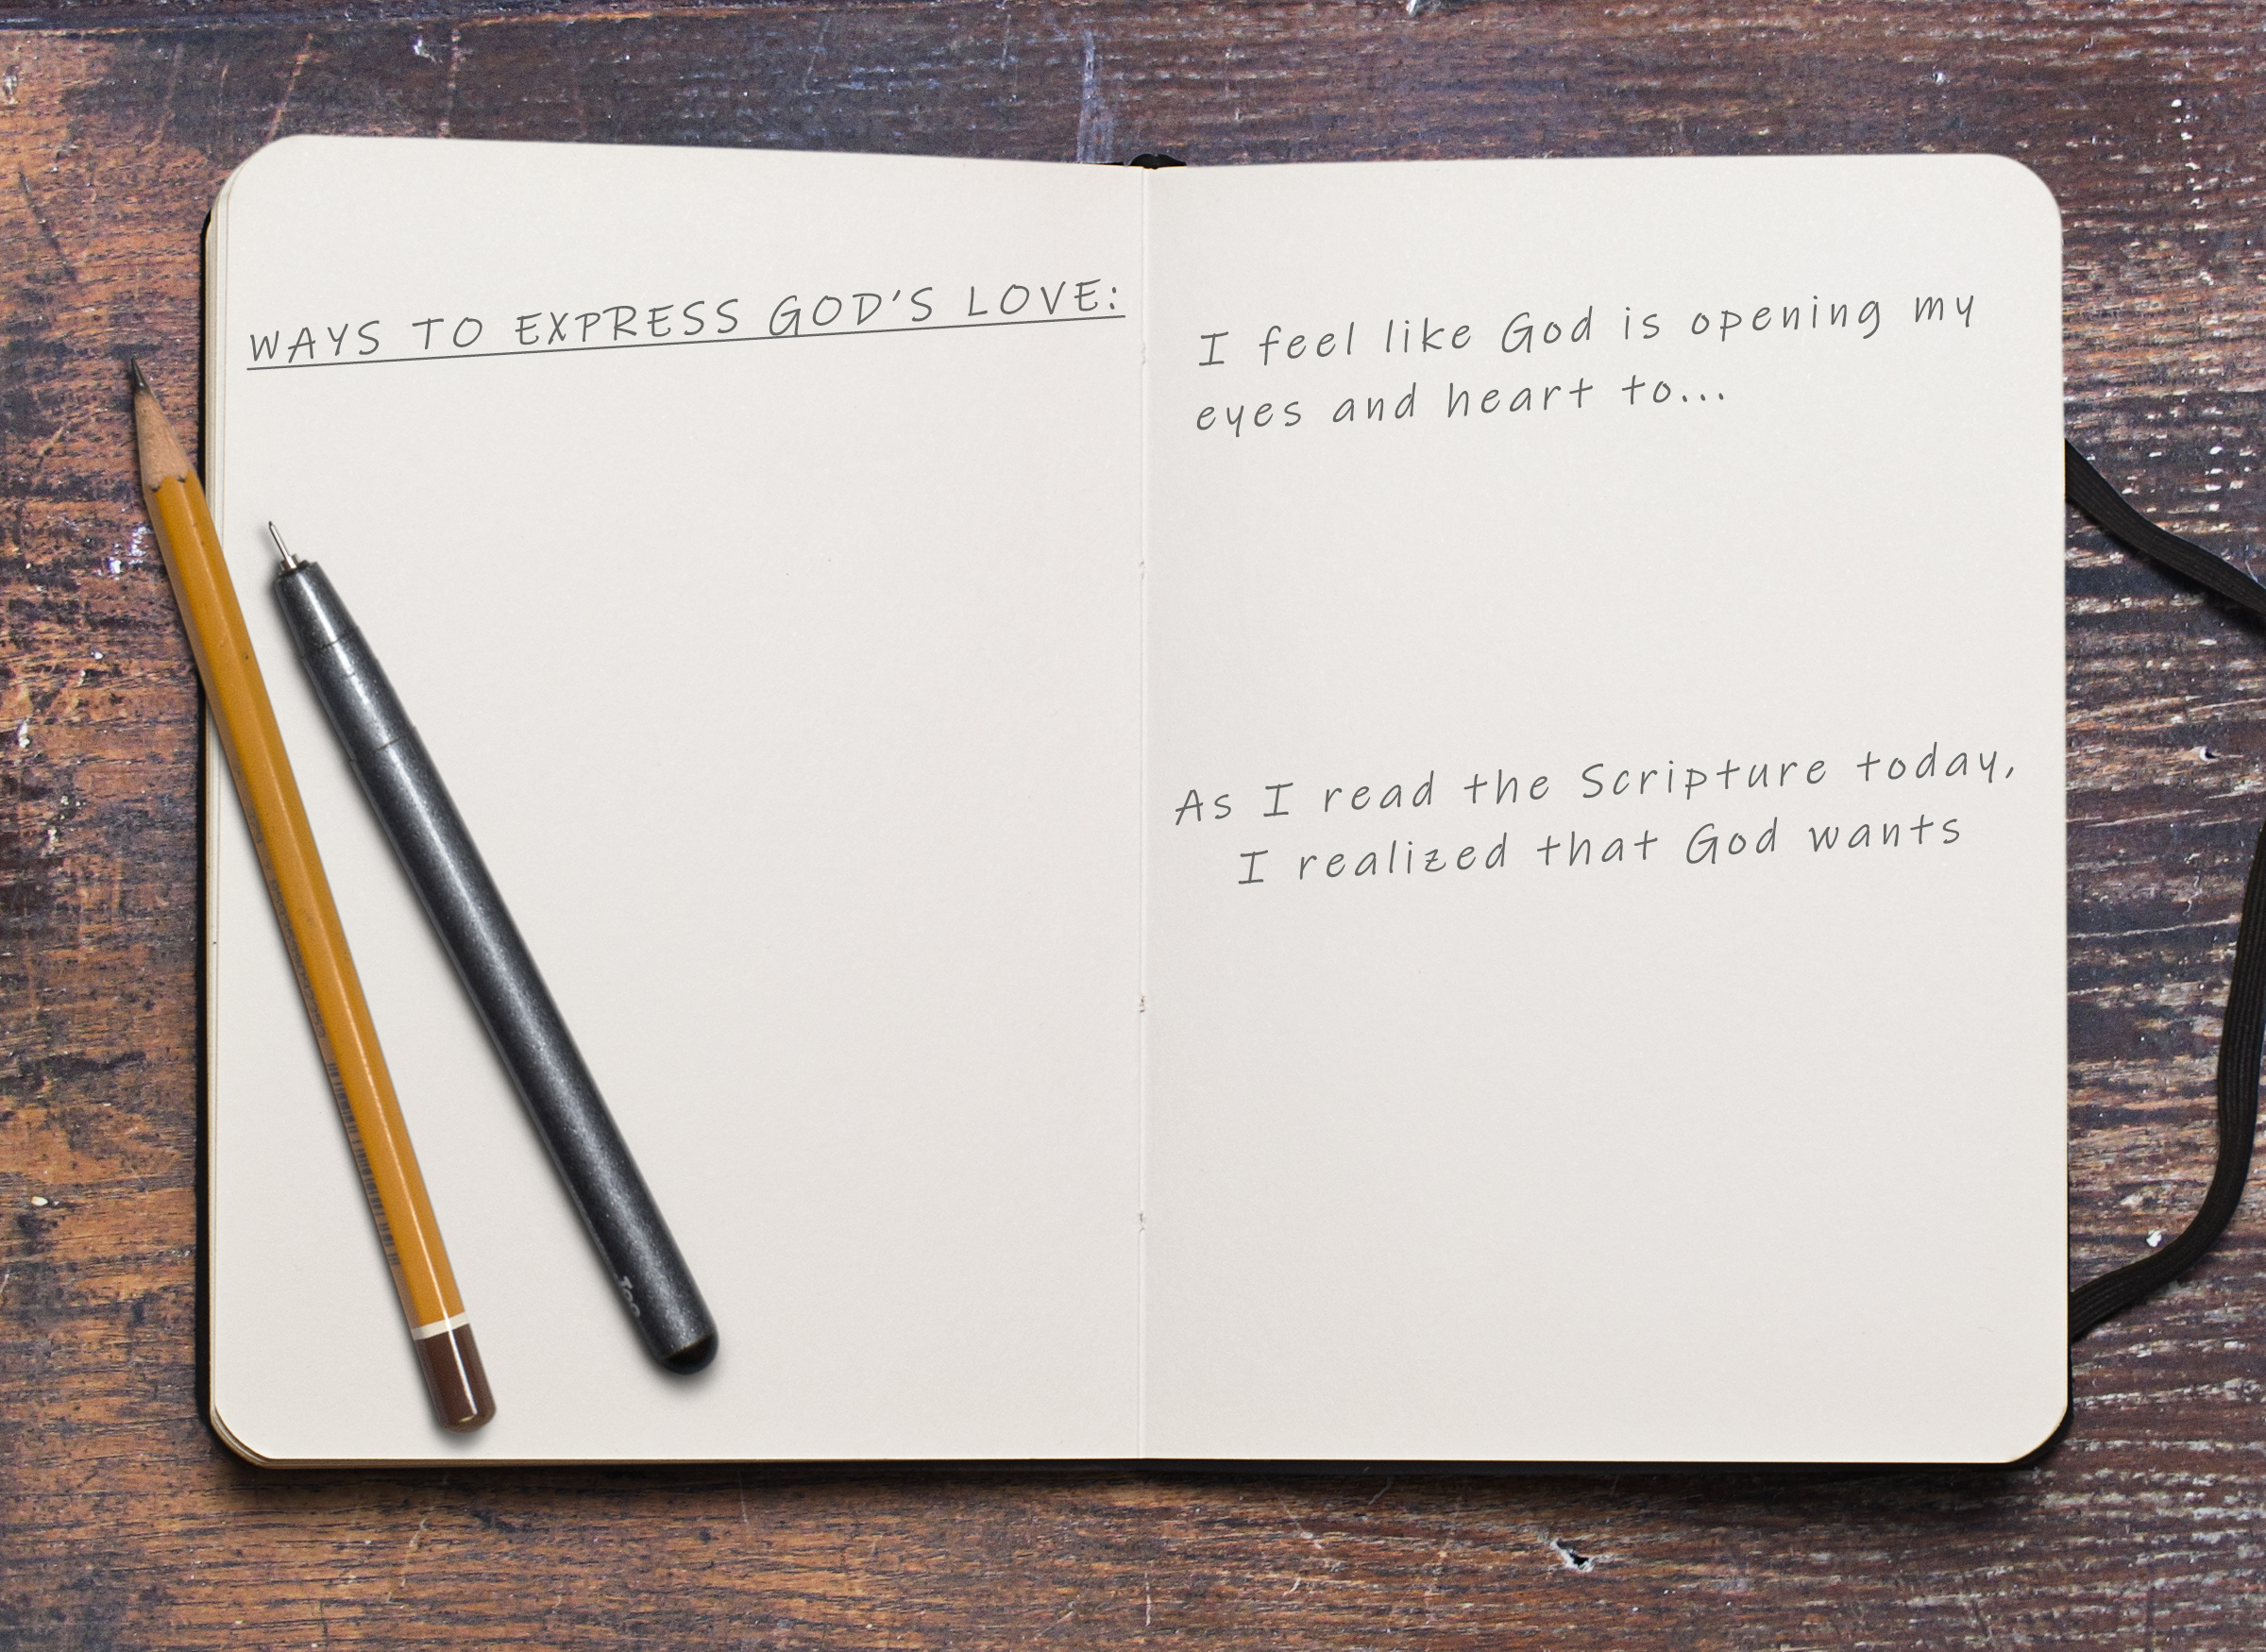 WAYS TO EXPRESS GOD'S LOVE:
I feel like God is opening my
eyes and heart to...
As I read the Scripture today,
I realized that God wants